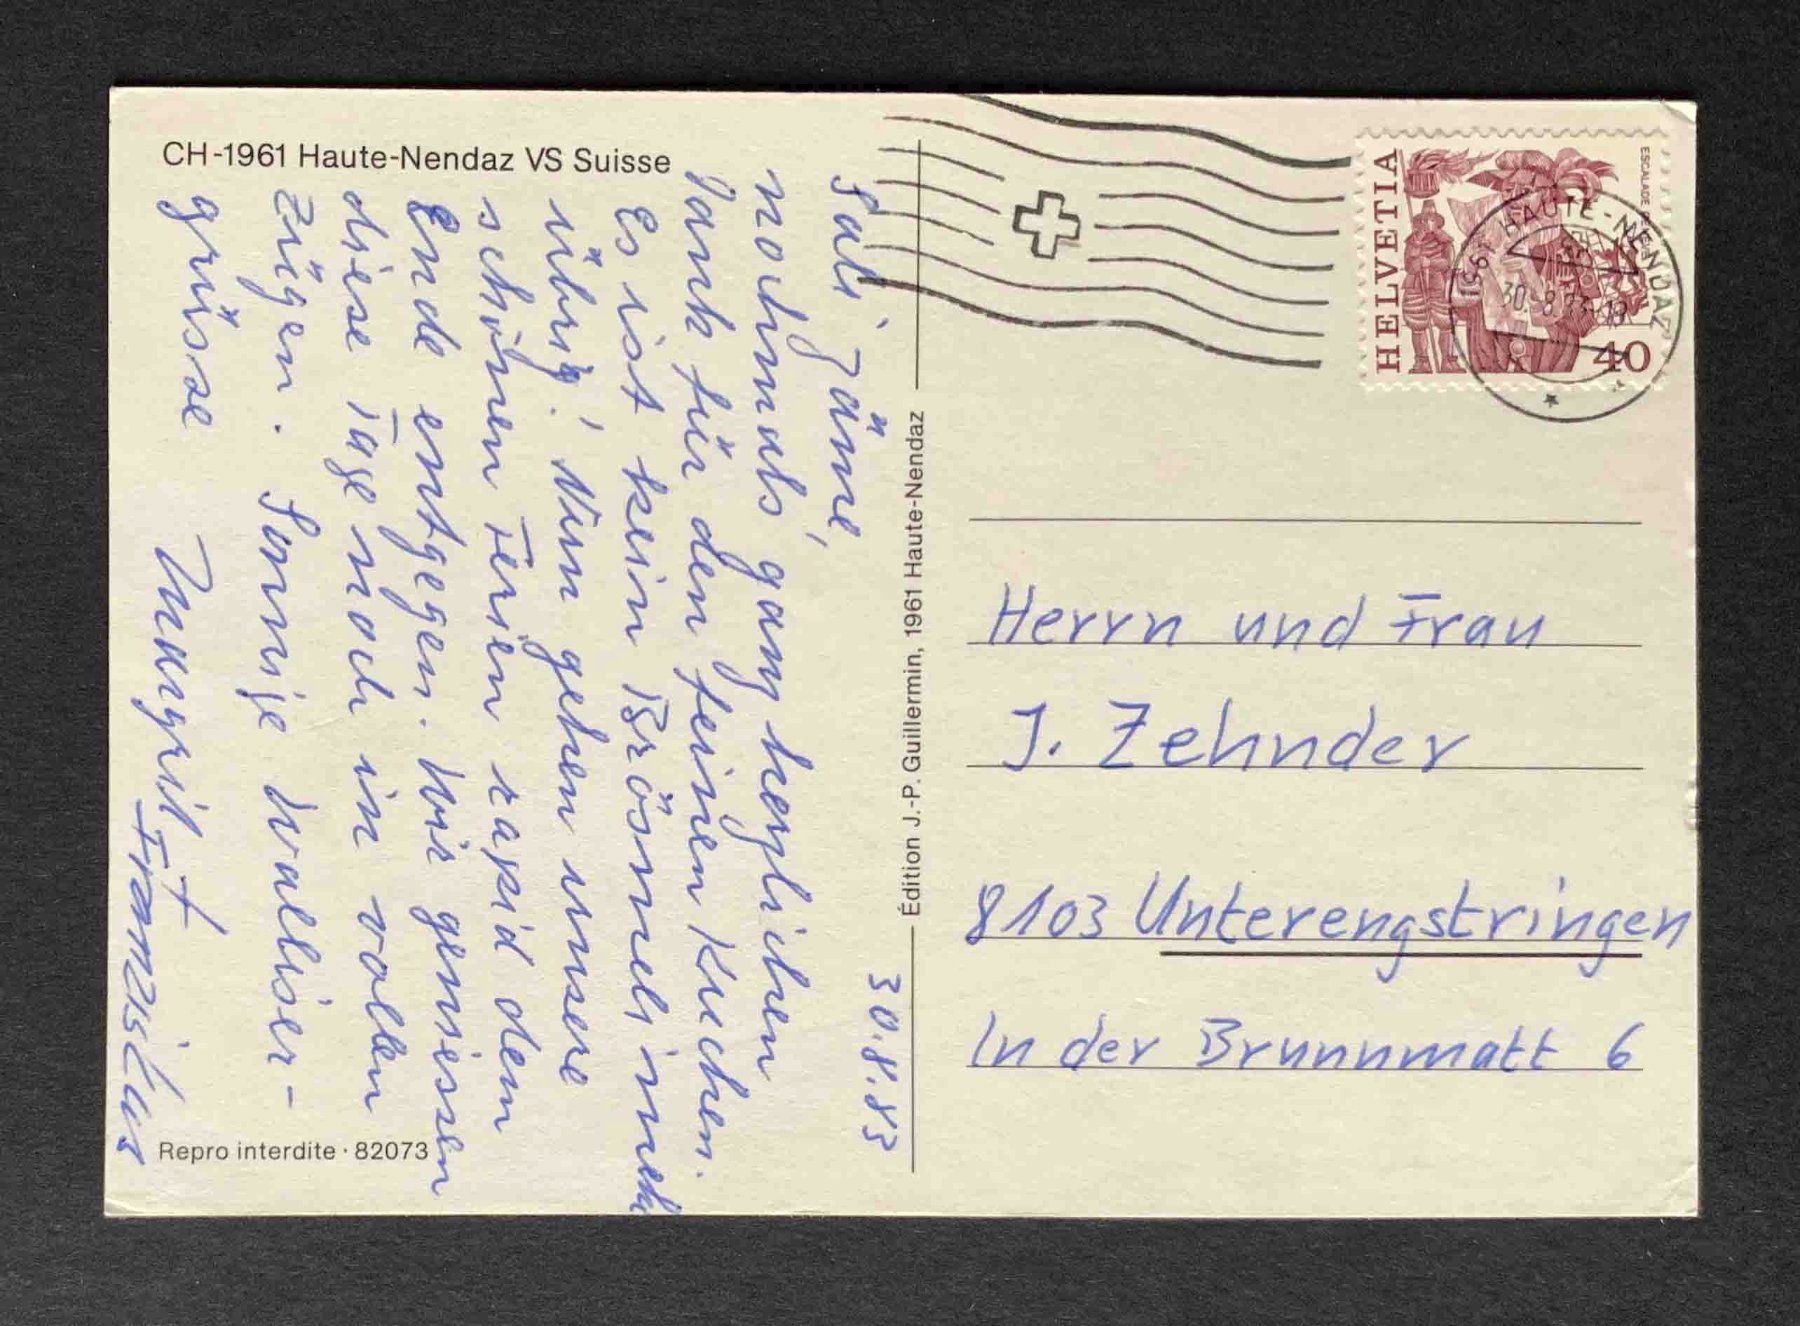 CH-1961 Haute-Nendaz VS Suisse
30.8.83
Sali Jäme,
nochmals ganz herzlichen
Dank für den feinen Kuchen.
Es ist kein Brösmeli meh
übrig! Nun gehen unsere
schönen Ferien rapid dem
Ende entgegen. Wir geniessen
diese Tage noch in vollen
Zügen. Sonnige Walliser-
grüsse
Margrit +
Franziskus
Repro interdite · 82073
Édition J.-P. Guillermin, 1961 Haute-Nendaz
HELVETIA
ESCALADE
40
1961 HAUTE-NENDAZ
30.-8.83-18
Herrn und Frau
J. Zehnder
8103 Unterengstringen
In der Brunnmatt 6